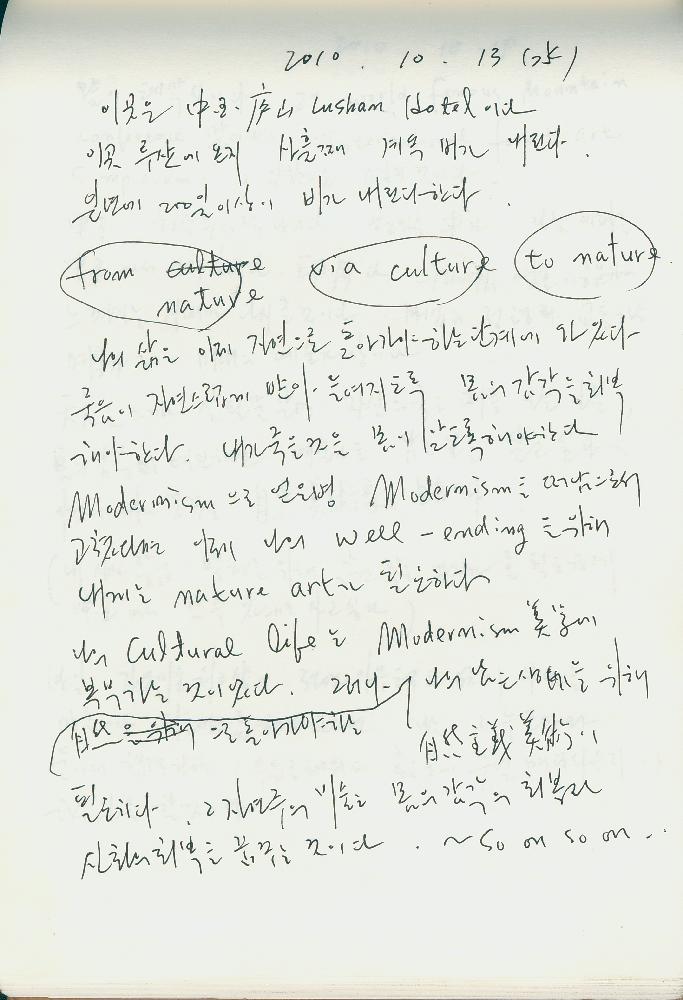 2010. 10. 13 (水)
이곳은 中国. 庐山 Lushan Hotel이다
이곳 루산에 온지 사흘째 계속 비가 내린다.
일년에 200일 이상이 비가 내린다한다.
from culture via culture to nature.
nature
나의 삶은 이제 자연으로 돌아가야하는 단계에 와 있다
죽음이 자연스럽게 받아. 들여지도록 몸의 감각을 회복
해야한다. 내가 죽을 것을 몸이 알도록해야한다
Modernism으로 얻은병 Modernism을 떠남으로서
고쳤다면 이제 나의 well-ending을 위해
내게는 nature art가 필요하다
나의 Cultural life는 Modernism 美学에
복무하는 것이었다. 그러나 나의 남은 생애를 위해
自然을 위해 으로 돌아가야하는
自然主義 美術이
필요하다. 그 자연주의 미술은 몸의 감각의 회복과
신화의 회복을 꿈꾸는 것이다. ~ so on so on..